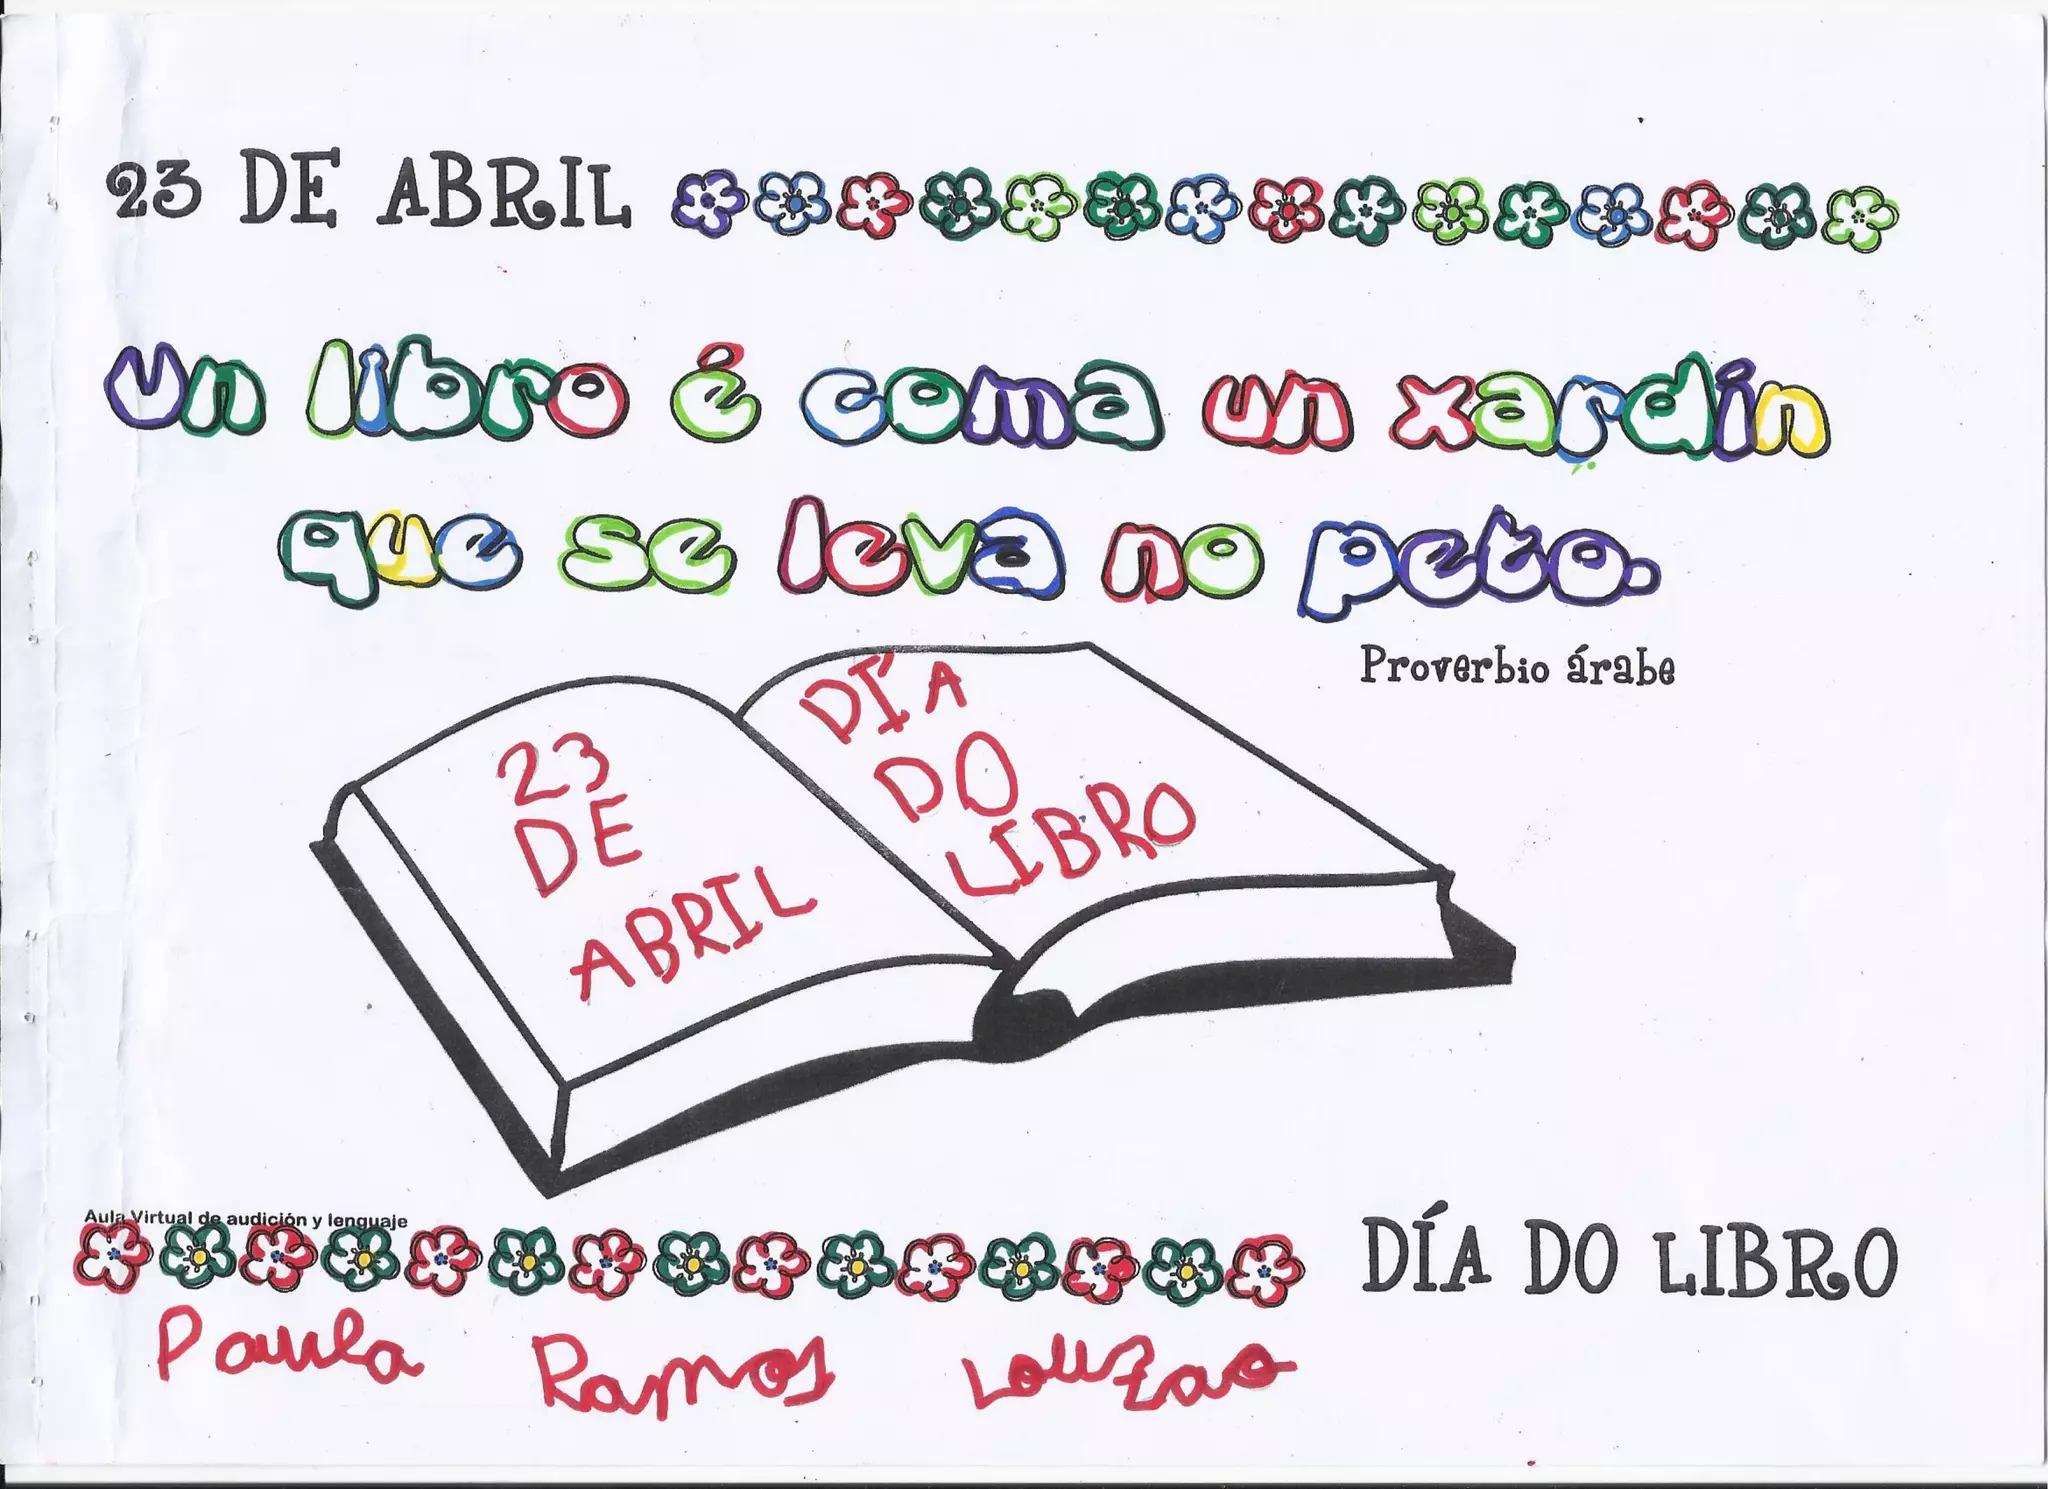 23 DE ABRIL
un libro é coma un xardín
que se leva no peto.
Proverbio árabe
23
DE
ABRIL
DÍA
DO
LIBRO
Aula Virtual de audición y lenguaje
DÍA DO LIBRO
Paula Ramos Louzao